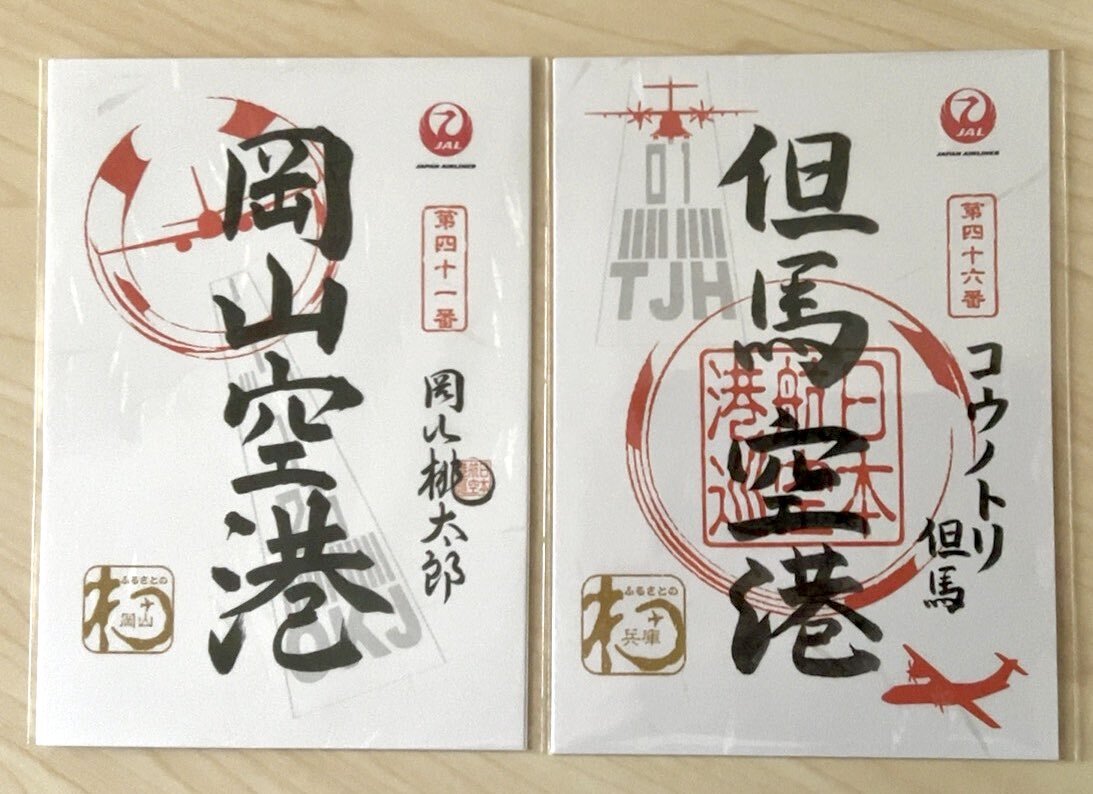 JAL
JAPAN AIRLINES
第四十一番
岡山空港
岡山桃太郎
OKJ
ふるさとの
岡山
JAL
JAPAN AIRLINES
第四十六番
01
TJH
但馬空港
日本
航空
港巡
コウノトリ
但馬
ふるさとの
兵庫